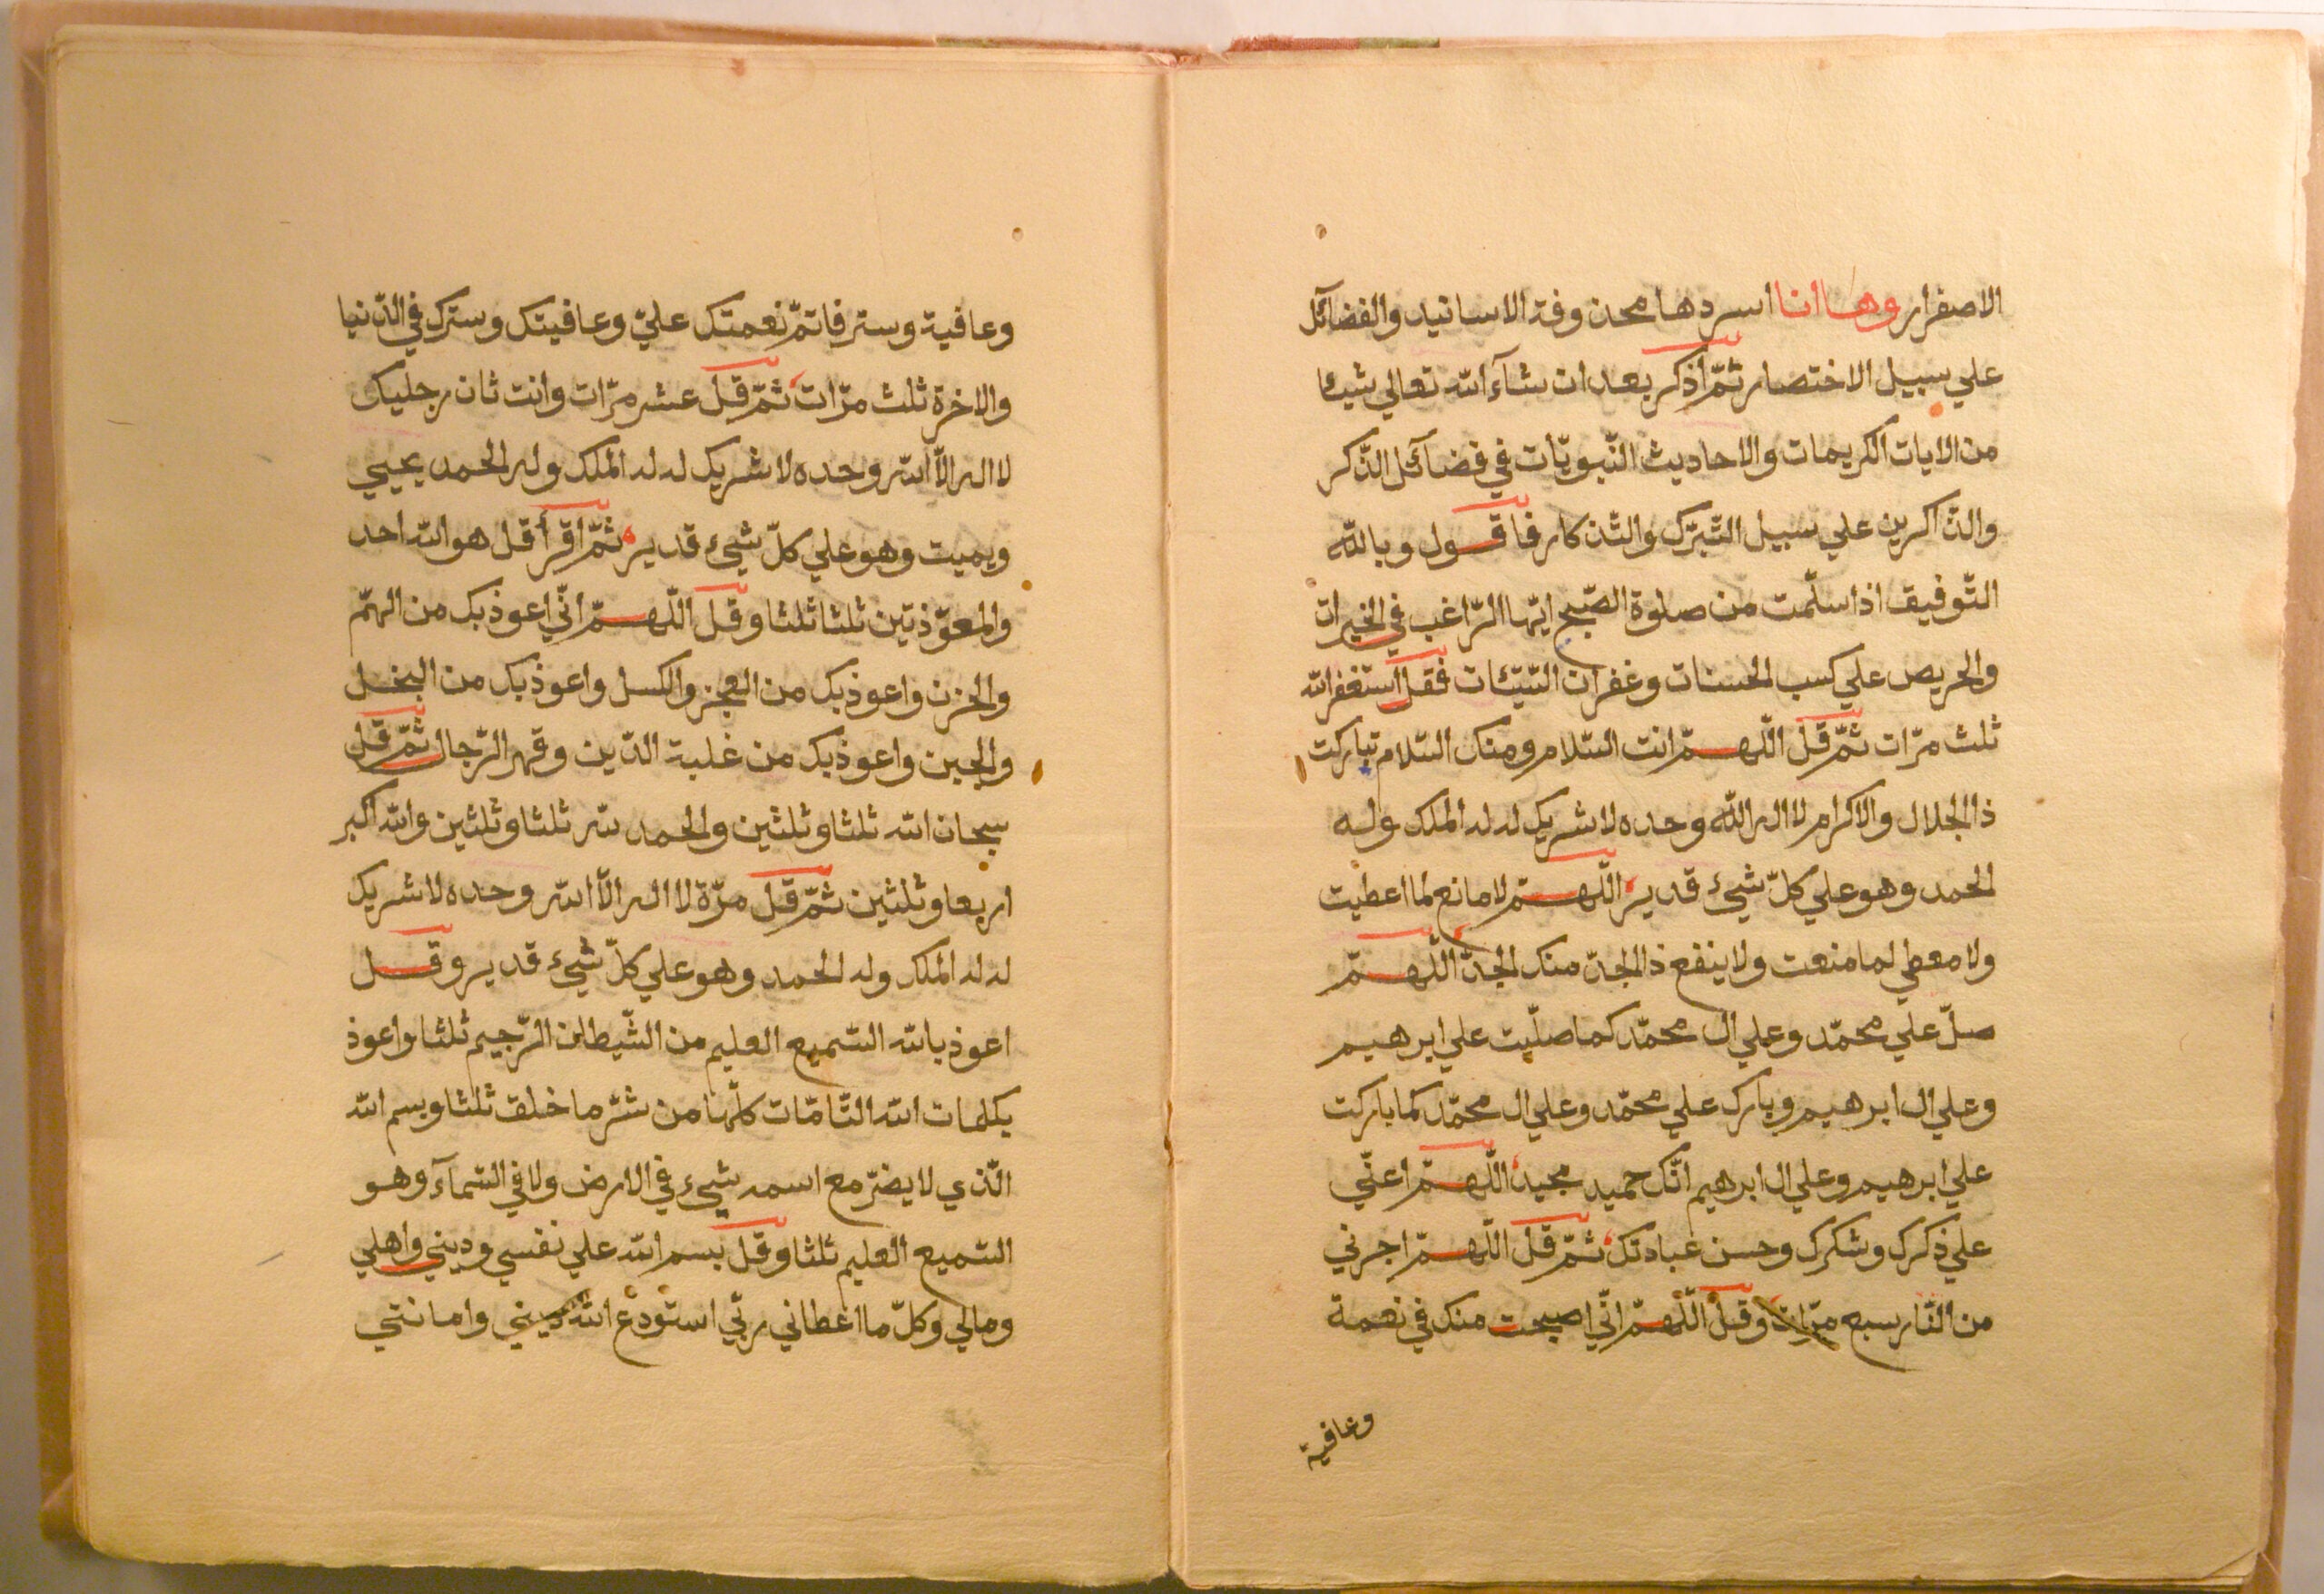 الاصفرار وها انا اسردها محذوفة الاسانيد والفضآئل
علي سبيل الاختصار ثمّ اذكر بعد ان شآء الله تعالي شيئا
من الايات الكريمات والاحاديث النّبويّات في فضآئل الذّكر
والذّاكرين علي سبيل التّبرّك والتّذكار فاقول وبالله
التّوفيق اذا سلّمت من صلوة الصّبح ايّها الرّاغب في الخيرات
والحريص علي كسب الحسنات وغفران السّيّئات فقل استغفر الله
ثلث مرّات ثمّ قل اللّهمّ انت السّلام ومنك السّلام تباركت
ذا الجلال والاكرام لا اله الا الله وحده لا شريك له له الملك وله
الحمد وهو علي كلّ شيء قدير اللّهمّ لا مانع لما اعطيت
ولا معطي لما منعت ولا ينفع ذا الجدّ منك الجدّ اللّهمّ
صلّ علي محمّد وعلي ال محمّد كما صلّيت علي ابرهيم
وعلي ال ابرهيم وبارك علي محمّد وعلي ال محمّد كما باركت
علي ابرهيم وعلي ال ابرهيم انّك حميد مجيد اللّهمّ اعنّي
علي ذكرك وشكرك وحسن عبادتك ثمّ قل اللّهمّ اجرني
من النّار سبع مرّات وقل اللّهمّ انّي اصبحت منك في نعمة
وعافية
وعافية وستر فاتمّ نعمتك عليّ وعافيتك وسترك في الدّنيا
والاخرة ثلث مرّات ثمّ قل عشر مرّات وانت ثان رجليك
لا اله الّا الله وحده لا شريك له له الملك وله الحمد يحيي
ويميت وهو علي كلّ شيء قدير ثمّ اقرأ قل هو الله احد
والمعوّذتين ثلثا ثلثا وقل اللّهمّ انّي اعوذ بك من الهمّ
والحزن واعوذ بك من العجز والكسل واعوذ بك من البخل
والجبن واعوذ بك من غلبة الدّين وقهر الرّجال ثمّ قل
سبحان الله ثلثا وثلثين والحمد لله ثلثا وثلثين والله اكبر
اربعا وثلثين ثمّ قل مرّة لا اله الّا الله وحده لا شريك
له له الملك وله الحمد وهو علي كلّ شيء قدير وقل
اعوذ بالله السّميع العليم من الشّيطان الرّجيم ثلثا واعوذ
بكلمات الله التّامّات كلّها من شرّ ما خلق ثلثا وبسم الله
الّذي لا يضرّ مع اسمه شيء في الارض ولا في السّمآء وهو
السّميع العليم ثلثا وقل بسم الله علي نفسي وديني واهلي
ومالي وكلّ ما اعطاني ربّي استودع الله ديني وامانتي